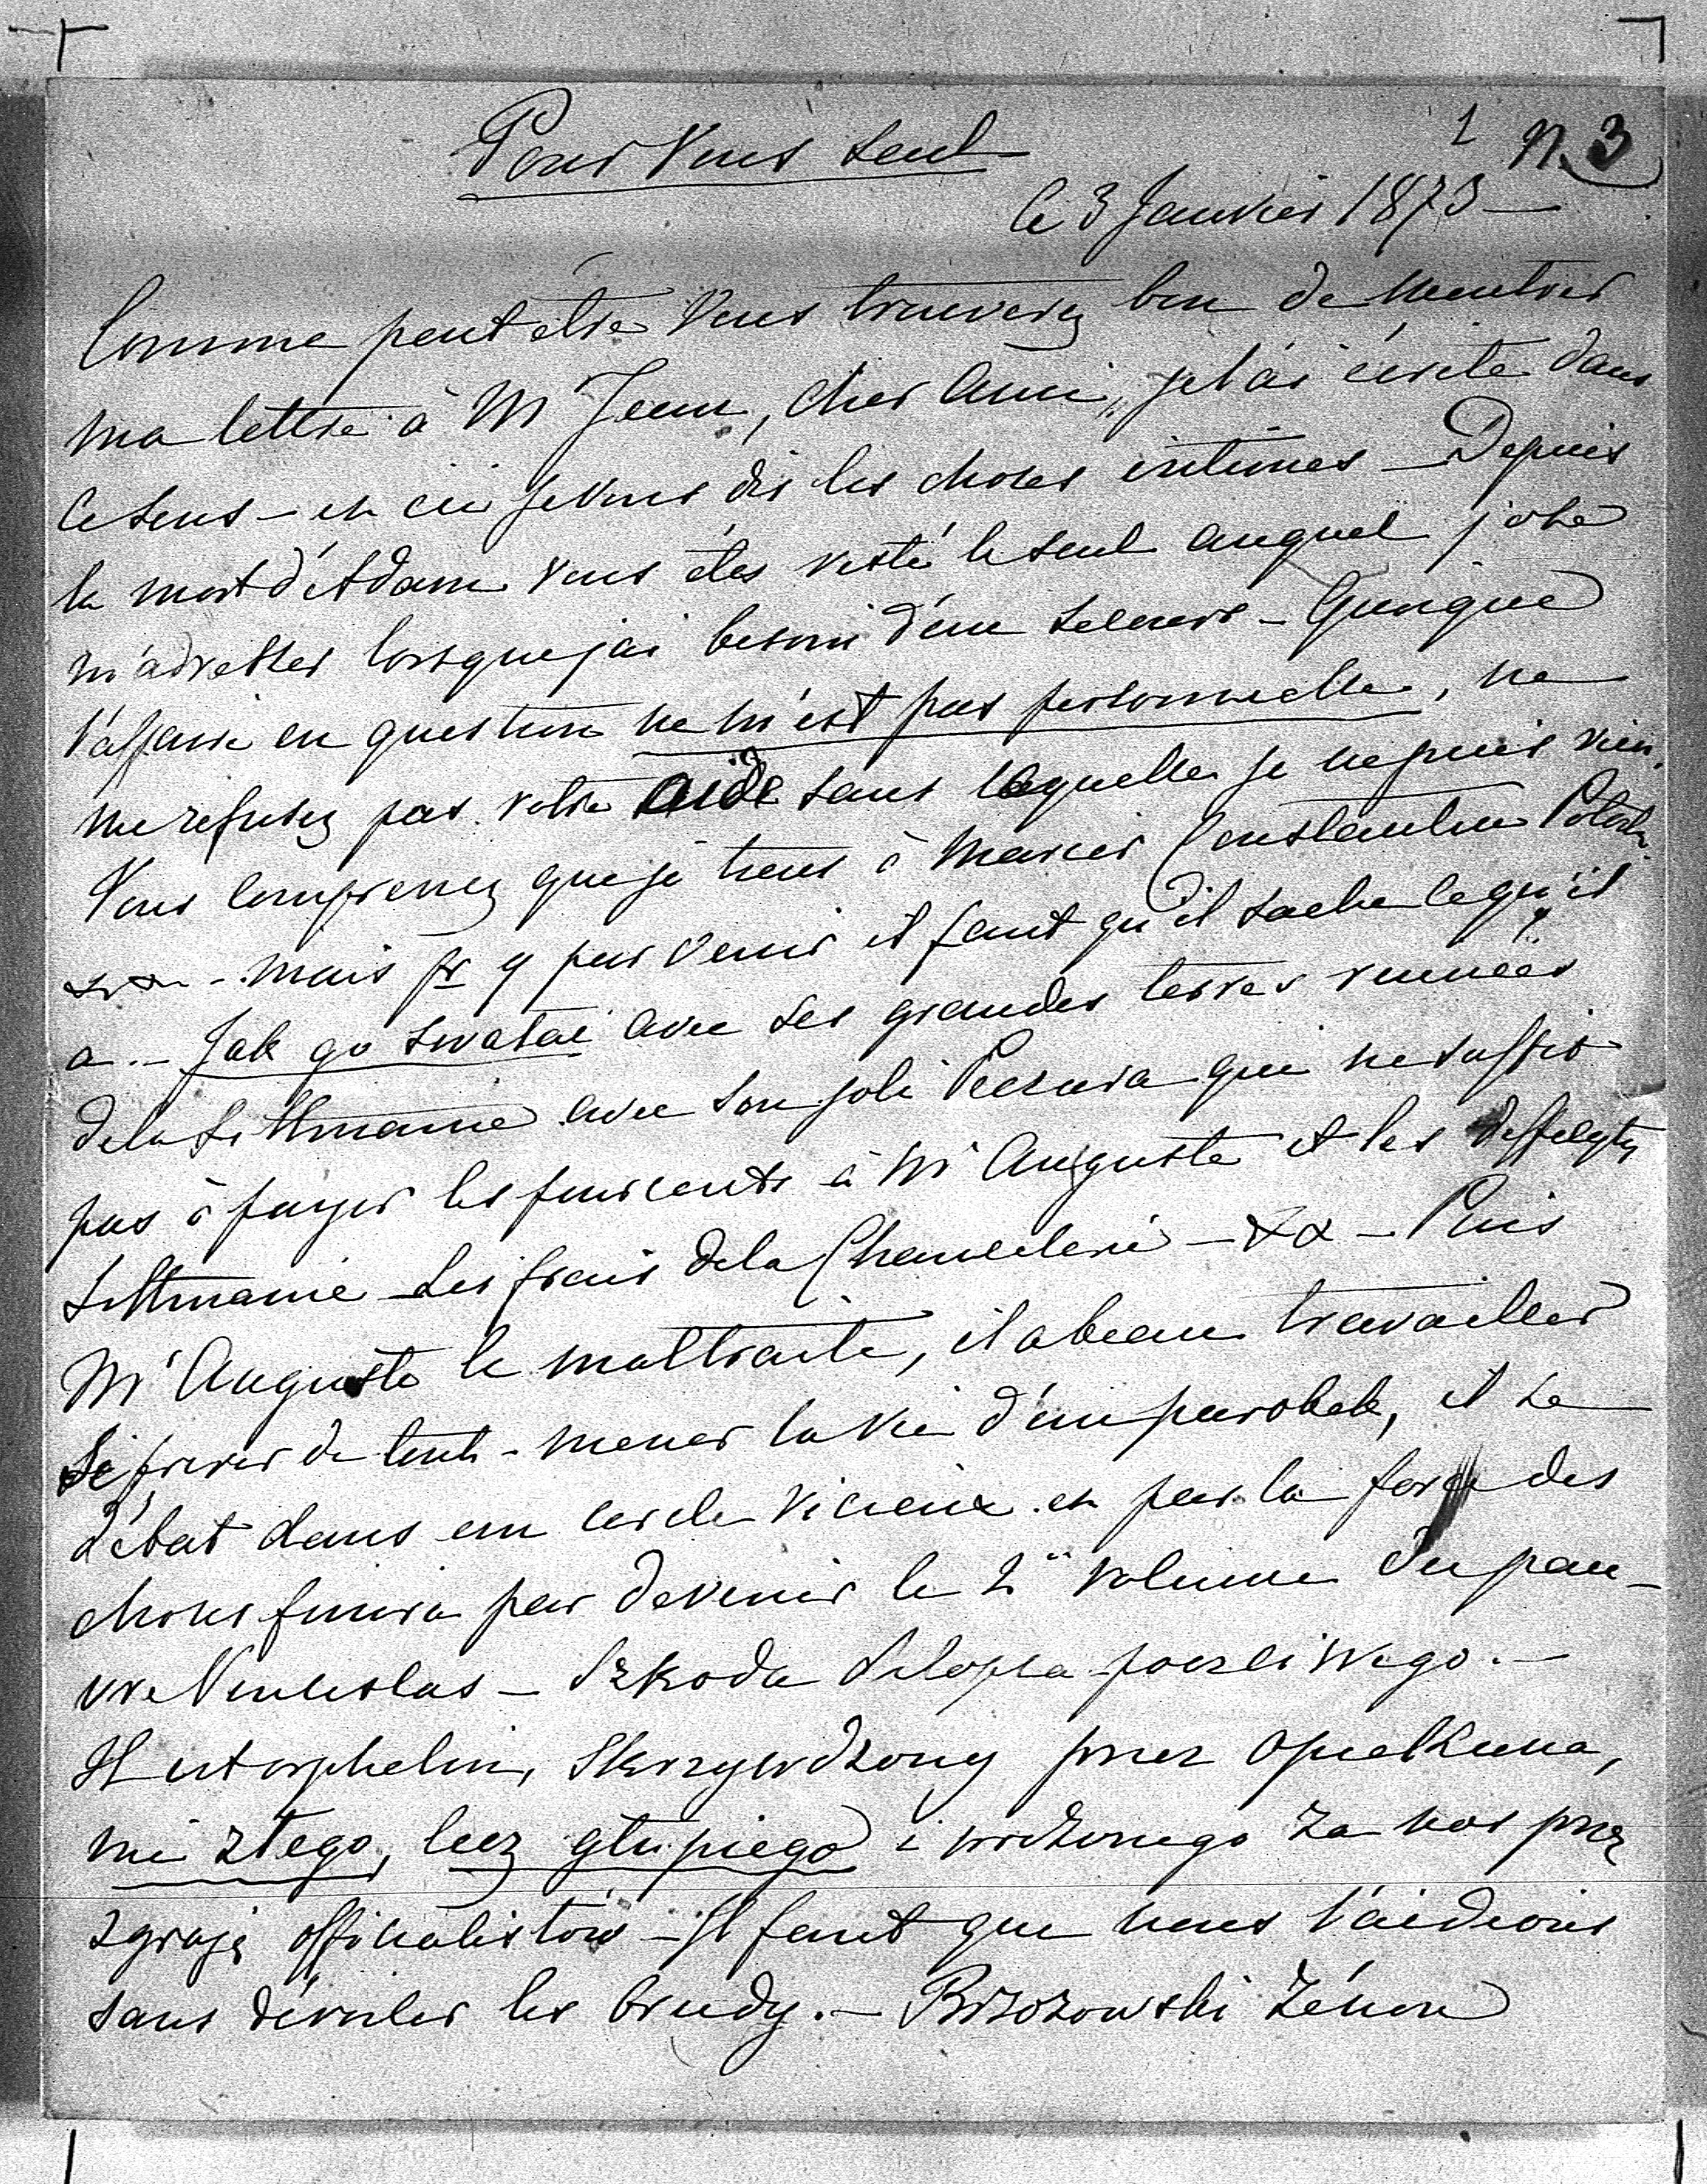 1 N. 3
Pour Vous seul
le 3 Janvier 1873 —
Comme peut être Vous trouverez bon de montrer
ma lettre à Mr Jean, cher Ami, je l'ai écrite dans
ce sens – et ici je vous dis les choses intimes – Depuis
la mort d'Adam vous êtes resté le seul auquel j'ose
m'adresser lorsque j'ai besoin d'un secours – Quoique
l'affaire en question ne m'est pas personnelle, ne
me refusez pas votre aide sans laquelle je ne puis rien.
Vous comprenez que je tiens à marier Constantin Potocki
– mais pr y parvenir il faut qu'il sache ce qu'il
a. – Jak go swatać avec ses grandes terres ruinées
de la Lithuanie avec son joli Peczara qui ne suffit
pas à payer les pourcents à Mr Auguste et les
Lithuanie – Les frais de la Chancelerie – &x – Puis
Mr Auguste le maltraite, il a beau travailler
se priver de tout – mener la vie d'un parobek, il se
débat dans un cercle vicieux et par la force des
choses finira par devenir le 2d volume du pau-
vre Venceslas – Szkoda chłopca poczciwego. –
Il est orphelin, skrzywdzony przez opiekuna,
nie złego, lecz głupiego i wodzonego za nos przez
zgraję officialistów – Il faut que nous l'aidions
sans dévoiler les brudy. – Brzozowski Zénon